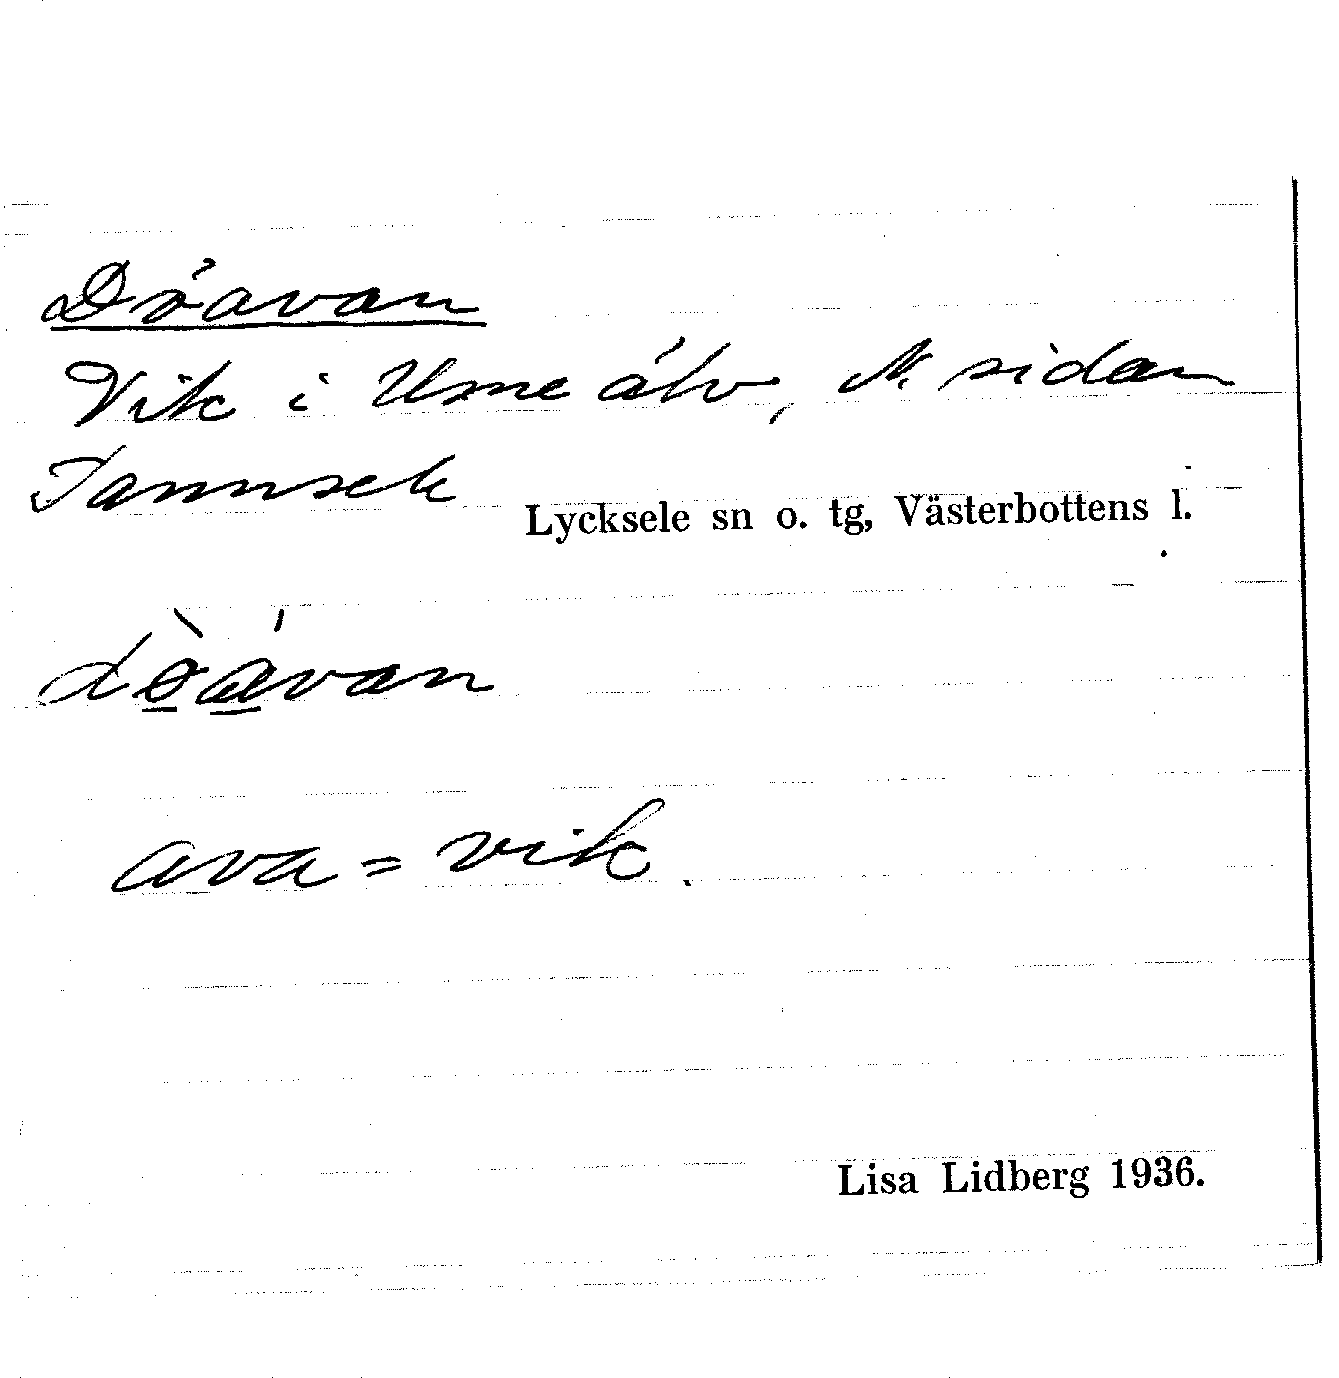 Döavan
Vik i Ume älv, N. sidan
Tannsele
Lycksele sn o. tg, Västerbottens l.
ava = vik.
Lisa Lidberg 1936.